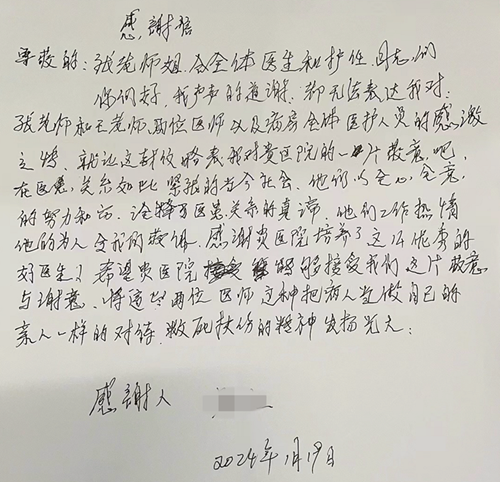 感謝信
尊敬的：张莲师姐全体医生和护性同志们
你们好，我声声的道谢，都无法表达我对：
张老师和王老师两位医师以及病房全体医护人员的感激
之情，就让这封信略表我对贵医院的一片敬意吧，
在医患关系如此紧张的当今社会，他们以全心全意
的努力和诠释了医患关系的真谛，他们工作热情
他的为人令我的敬佩。感谢贵医院培养了这么优秀的
好医生！希望贵医院能够接受我们这片敬意
与谢意，将这两位医师这种把病人当做自己的
亲人一样的对待，救死扶伤的精神发扬光大：
感謝人
2024年1月19日